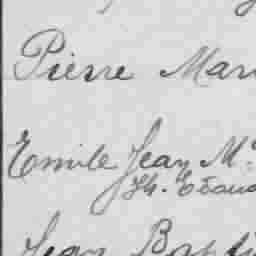 Pierre Mar
Emile Jean M.
Jean Bapti